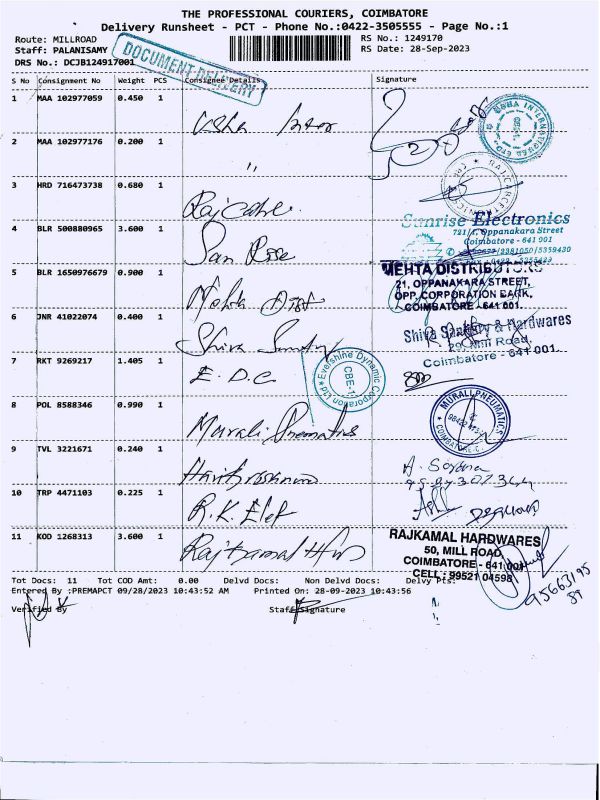 THE PROFESSIONAL COURIERS, COIMBATORE
Delivery Runsheet - PCT - Phone No.:0422-3505555 - Page No.:1
Route: MILLROAD
RS No.: 1249170
Staff: PALANISAMY
RS Date: 28-Sep-2023
DRS No.: DCJB124917001
DOCUMENT DELIVERY
S No Consignment No Weight PCS Consignee Details Signature
1 MAA 102977059 0.450 1 Usha
USHA INTERNATIONAL LTD
2 MAA 102977176 0.200 1 "
3 HRD 716473738 0.680 1 Raj Cane
4 BLR 500880965 3.600 1 San Rise
Sunrise Electronics
721/, Oppanakara Street
Coimbatore - 641 001
5 BLR 1650976679 0.900 1 Mehta Dist
MEHTA DISTRIBUTORS
21, OPPANAKARA STREET,
OPP. CORPORATION BANK,
COIMBATORE - 641 001.
6 JNR 41022074 0.400 1 Shiva Sanitry
Shiva Sanitary & Hardwares
Mill Road,
Coimbatore - 641 001.
7 RKT 9269217 1.405 1 E.D.C
Evershine Dynamic Corporation Ltd
CBE-1
8 POL 8588346 0.990 1 Murali Pnematics
MURALI PNEUMATICS
COIMBATORE
9 TVL 3221671 0.240 1 Harikrishnan
10 TRP 4471103 0.225 1 R.K. Elet
11 KOD 1268313 3.600 1 Rajkamal H/w
RAJKAMAL HARDWARES
50, MILL ROAD
COIMBATORE - 641 001
CELL : 99521 04598
95663195
89
Tot Docs: 11 Tot COD Amt: 0.00 Delvd Docs: Non Delvd Docs: Delvy Pts:
Entered By :PREMAPCT 09/28/2023 10:43:52 AM Printed On: 28-09-2023 10:43:56
Verified By Staff Signature